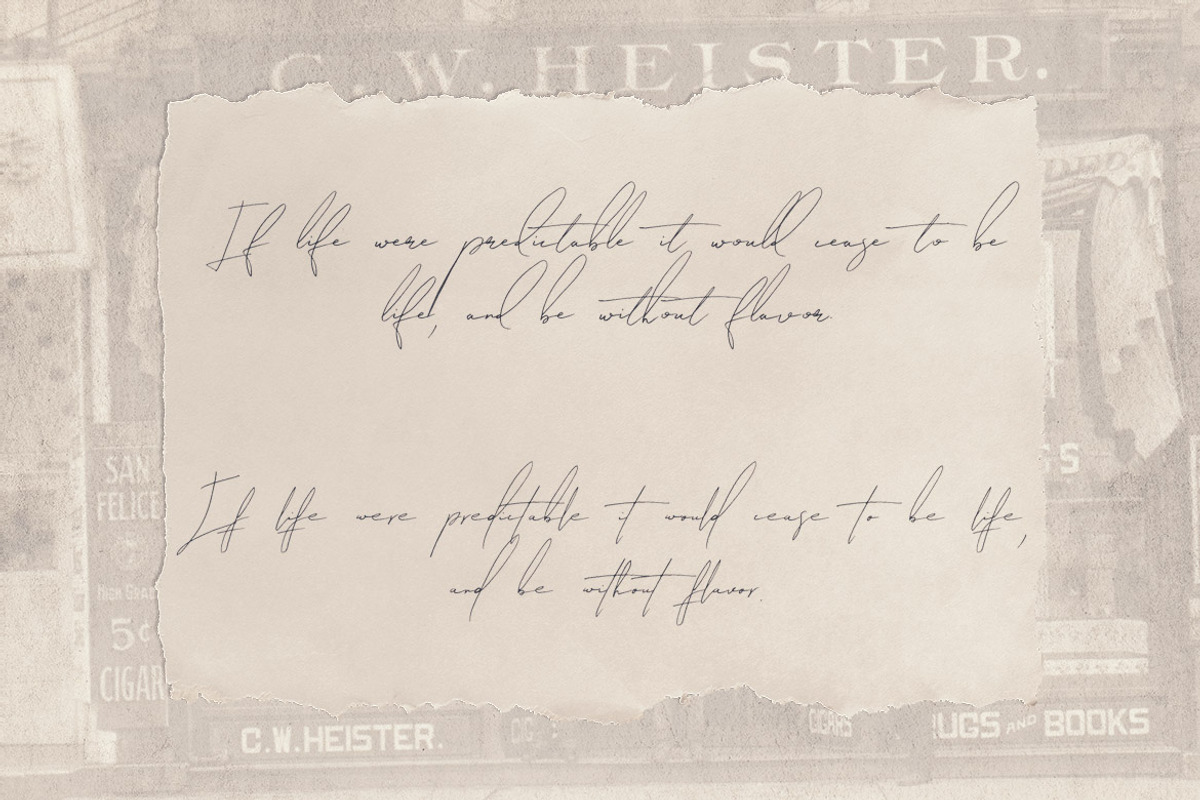 C. W. HEISTER.
If life were predictable it would cease to be
life, and be without flavor.
If life were predictable it would cease to be life,
and be without flavor.
SAN
FELICE
HIGH GRADE
5¢
CIGAR
C.W.HEISTER.
CIGARS
AND BOOKS